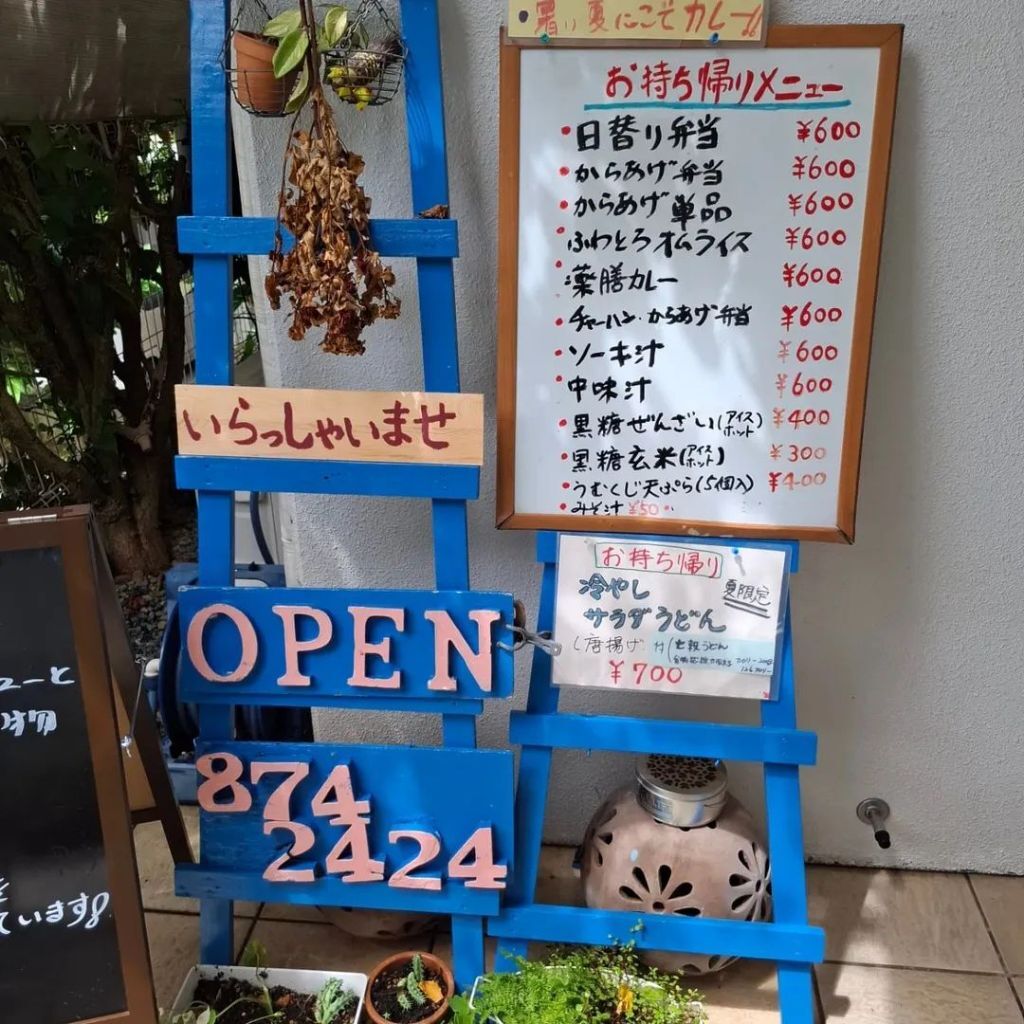 暑い夏にこそカレー!!
お持ち帰りメニュー
・日替り弁当 ¥600
・からあげ弁当 ¥600
・からあげ単品 ¥600
・ふわとろオムライス ¥600
・薬膳カレー ¥600
・チャーハン・からあげ弁当 ¥600
・ソーキ汁 ¥600
・中味汁 ¥600
・黒糖ぜんざい(アイス ホット) ¥400
・黒糖玄米(アイス ホット) ¥300
・うむくじ天ぷら(5個入) ¥400
・みそ汁 ¥50
いらっしゃいませ
お持ち帰り
夏限定
冷やし
サラダうどん
(唐揚げ付
¥700
OPEN
874
2424
ューと
物
ています